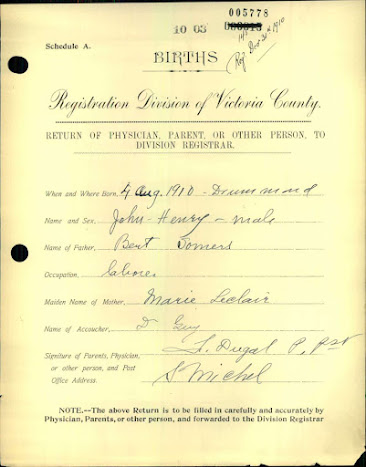 005778
10 03
Schedule A.
Reg Dec 31st 1910
BIRTHS
Registration Division of Victoria County.
RETURN OF PHYSICIAN, PARENT, OR OTHER PERSON, TO
DIVISION REGISTRAR.
When and Where Born, 4 Aug. 1910 - Drummond
Name and Sex, John Henry - male
Name of Father, Bert Somers
Occupation, labore
Maiden Name of Mother, Marie Leclair
Name of Accoucher, D Guy
Signature of Parents, Physician, L. Dugal P. Pst
or other person, and Post
Office Address. S Michel
NOTE.--The above Return is to be filled in carefully and accurately by
Physician, Parents, or other person, and forwarded to the Division Registrar